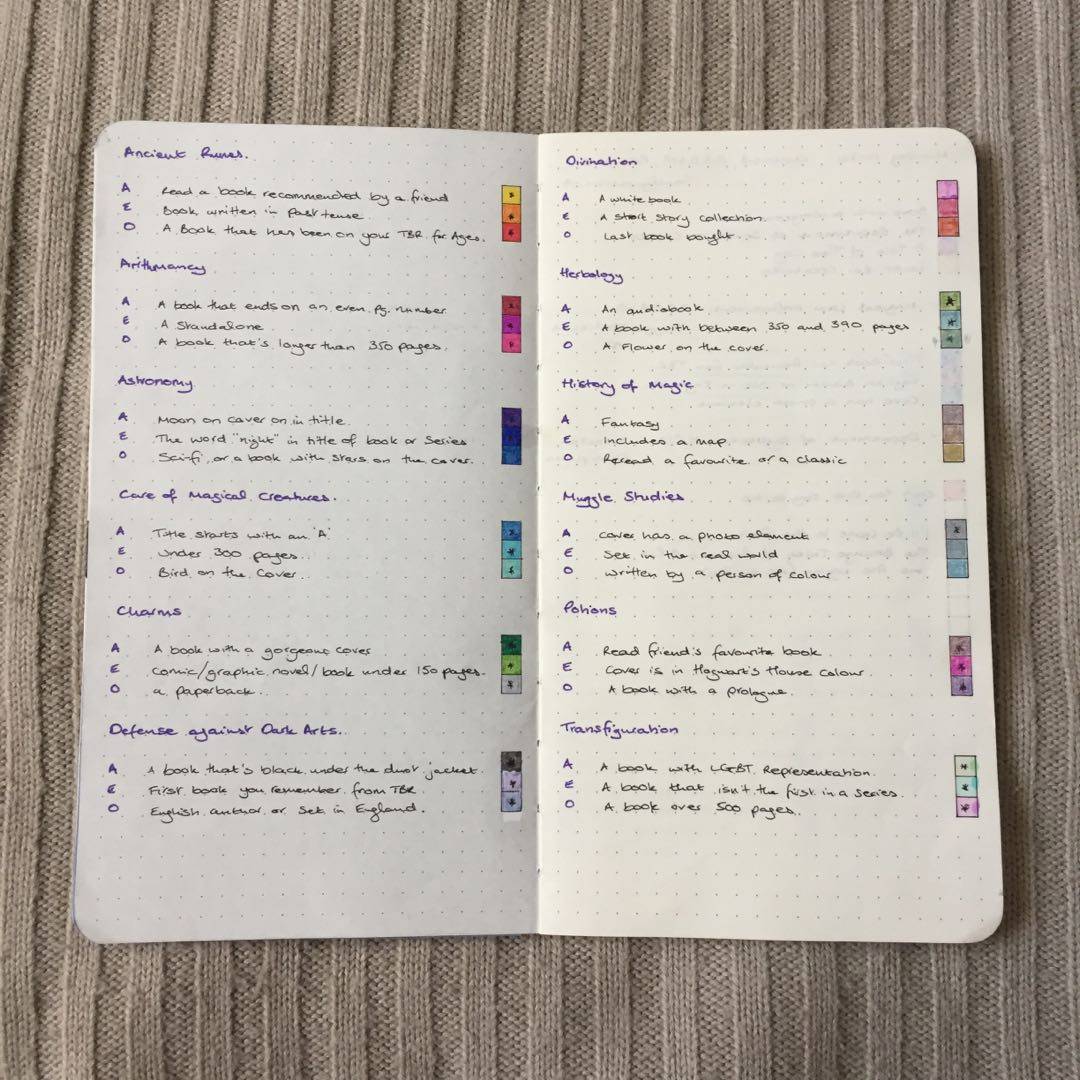 Ancient Runes.
A Read a book recommended by a friend
E Book written in past tense
O A Book that has been on your TBR for Ages.
Arithmancy
A A book that ends on an even pg. number
E A Standalone
O A book that's longer than 350 pages.
Astronomy
A Moon on cover on in title.
E The word "night" in title of book or series
O Sci-fi or a book with stars on the cover.
Care of Magical Creatures.
A Title starts with an 'A'
E Under 300 pages.
O Bird on the cover.
Charms
A A book with a gorgeous cover
E Comic/graphic novel/book under 150 pages.
O a paperback.
Defense against Dark Arts.
A A book that's black under the dust jacket.
E First book you remember from TBR
O English author or set in England.
Divination
A A white book
E A short story collection.
O Last book bought.
Herbology
A An audiobook
E A book with between 350 and 390 pages
O A Flower on the cover.
History of Magic
A Fantasy
E Includes a map
O Reread a favourite or a classic
Muggle Studies
A cover has a photo element
E Set in the real world
O written by a person of colour
Potions
A Read friend's favourite book
E Cover is in Hogwart's House Colour
O A book with a prologue.
Transfiguration
A A book with LGBT Representation.
E A book that isn't the first in a series.
O A book over 500 pages.